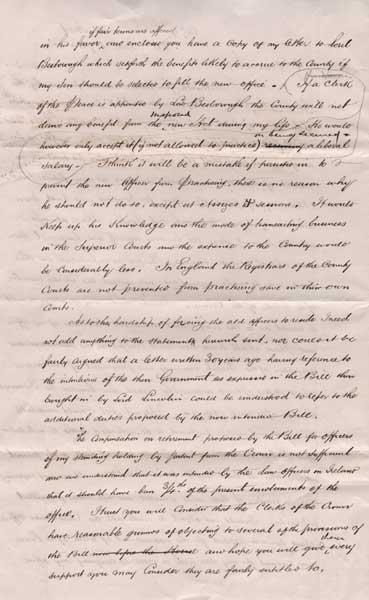 if fair terms are offered
in his favor, and enclose you have a Copy of my letter to Lord
Besborough which setforth the benefits likely to accrue to the County if
my Son should be selected to fill the new office. If a Clerk
of the Peace is appointed by Lord Besborough the County will not
derive any benefit from the new Act during my life. He would
however only accept it (if not allowed to practice) a liberal
in being secured
salary. I think it will be a mistake if persisted in to
prevent the new Officer from Practising, there is no reason why
he should not do so, except at Assizes & Sessions. It would
Keep up his Knowledge and the mode of transacting business
in the Superior Courts and the expense to the County would
be Considerably less. In England the Registrars of the County
Courts are not prevented from practising save in their own
Courts.
As to the hardship of forcing the old officers to reside I need
not add anything to the Statements herewith sent, nor could it be
fairly argued that a letter written 30 years ago having reference to
the intentions of the then Government as expressed in the Bill then
brought in by Lord Lincoln could be understood to refer to the
additional duties proposed by the now intended Bill.
The Compensation on retirement proposed by the Bill for officers
of my standing holding by patent from the Crown is not sufficient
and we understand that it was intended by the Law Officers in Ireland
that it should have been 3/4ths of the present emoluments of the
office. I trust you will Consider that the Clerks of the Crown
have reasonable grounds of objecting to several of the provisions of
the Bill now before the House and hope you will give them every
support you may Consider they are fairly entitled to.